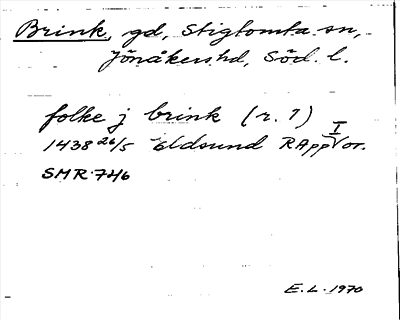 Brink, gd, Stigtomta sn,
Jönåkers hd, Söd. l.
folke j brink (r. 1)
1438 26/5 Eldsund RAppVor. I
SMR 746
E.L. 1970